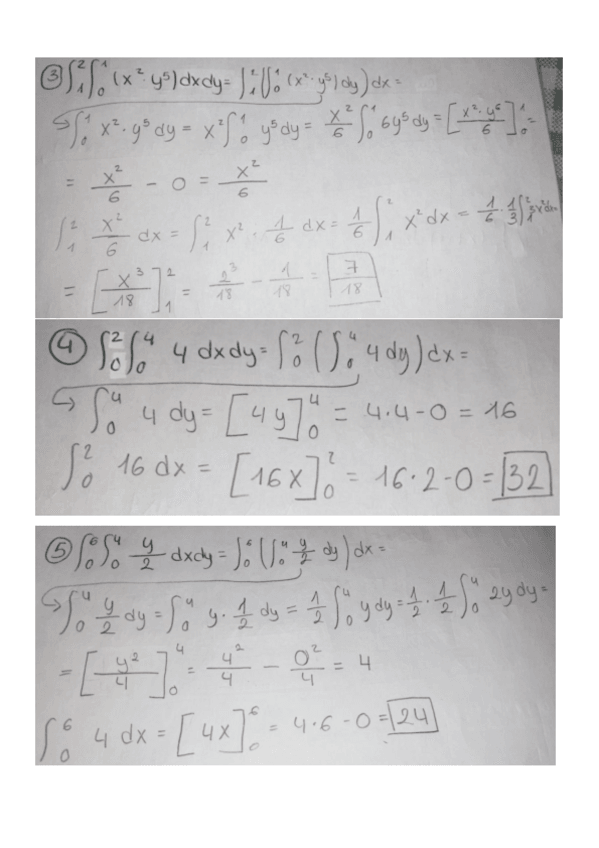 ③ ∫₁² ∫₀¹ (x² · y⁵) dx dy = ∫₁² (∫₀¹ (x² · y⁵) dy) dx =
↳ ∫₀¹ x² · y⁵ dy = x² ∫₀¹ y⁵ dy = x²/6 ∫₀¹ 6y⁵ dy = [x² · y⁶/6]₀¹ =
= x²/6 - 0 = x²/6
∫₁² x²/6 dx = ∫₁² x² · 1/6 dx = 1/6 ∫₁² x² dx = 1/6 · 1/3 ∫₁² 3x² dx =
= [x³/18]₁² = 2³/18 - 1/18 = 7/18
④ ∫₀² ∫₀⁴ 4 dx dy = ∫₀² (∫₀⁴ 4 dy) dx =
↳ ∫₀⁴ 4 dy = [4y]₀⁴ = 4·4 - 0 = 16
∫₀² 16 dx = [16x]₀² = 16·2 - 0 = 32
⑤ ∫₀⁶ ∫₀⁴ y/2 dx dy = ∫₀⁶ (∫₀⁴ y/2 dy) dx =
↳ ∫₀⁴ y/2 dy = ∫₀⁴ y · 1/2 dy = 1/2 ∫₀⁴ y dy = 1/2 · 1/2 ∫₀⁴ 2y dy =
= [y²/4]₀⁴ = 4²/4 - 0²/4 = 4
∫₀⁶ 4 dx = [4x]₀⁶ = 4·6 - 0 = 24